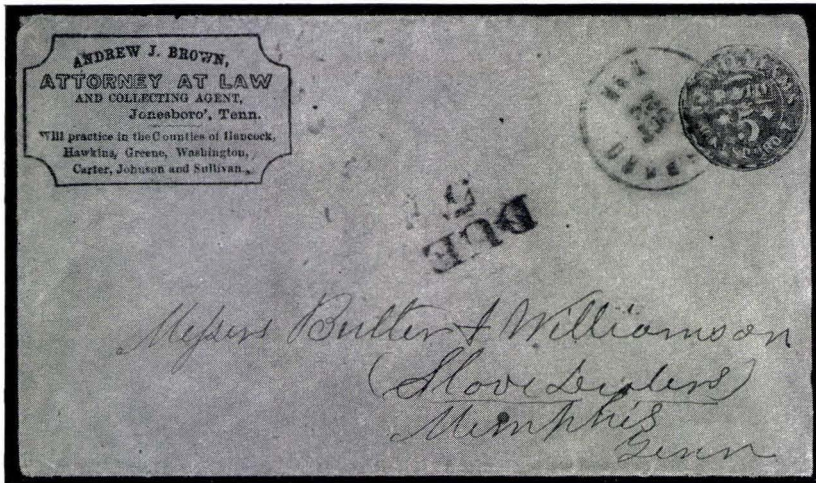 ANDREW J. BROWN,
ATTORNEY AT LAW
AND COLLECTING AGENT,
Jonesboro', Tenn.
Will practice in the Counties of Hancock,
Hawkins, Greene, Washington,
Carter, Johnson and Sullivan.
PAID
5
DUE
5
Messers Butler & Williamson
(Stove Dealers)
Memphis
Tenn